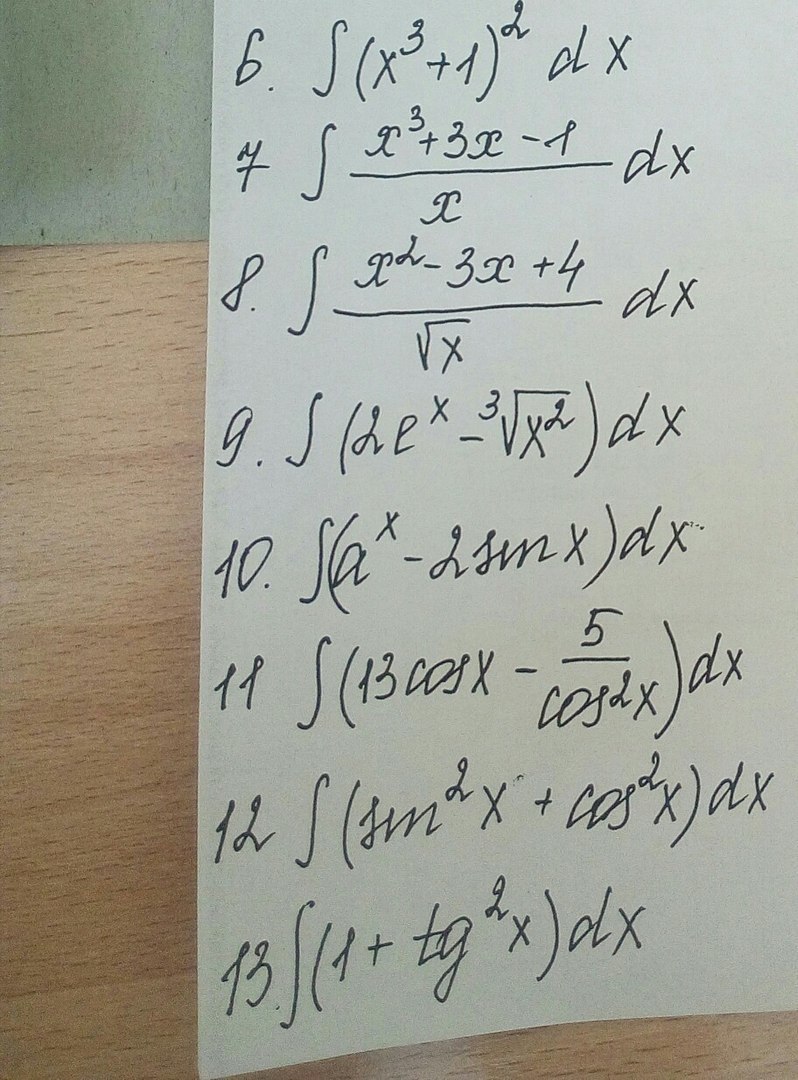 6. ∫(x³+1)² dx
7 ∫ (x³+3x-1)/x dx
8. ∫ (x²-3x+4)/√x dx
9. ∫(2e^x - ³√x²)dx
10. ∫(a^x - 2sin x)dx
11 ∫(13cosx - 5/cos²x)dx
12 ∫(sin²x + cos²x)dx
13. ∫(1 + tg²x)dx